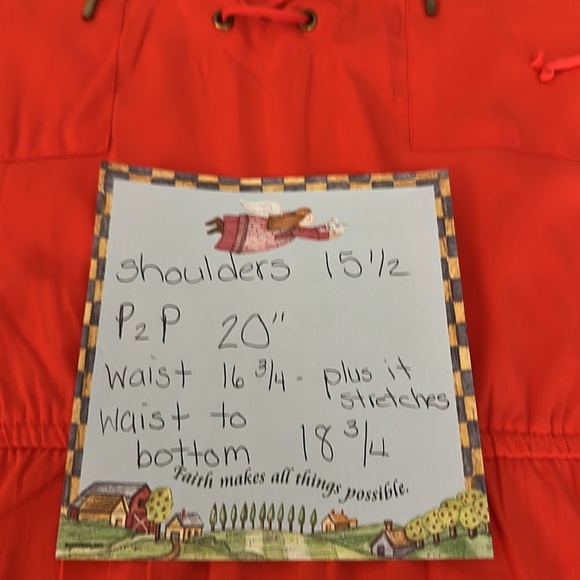 shoulders 15 1/2
P2P 20"
Waist 16 3/4 - plus it
stretches
Waist to
bottom 18 3/4
Faith makes all things possible.